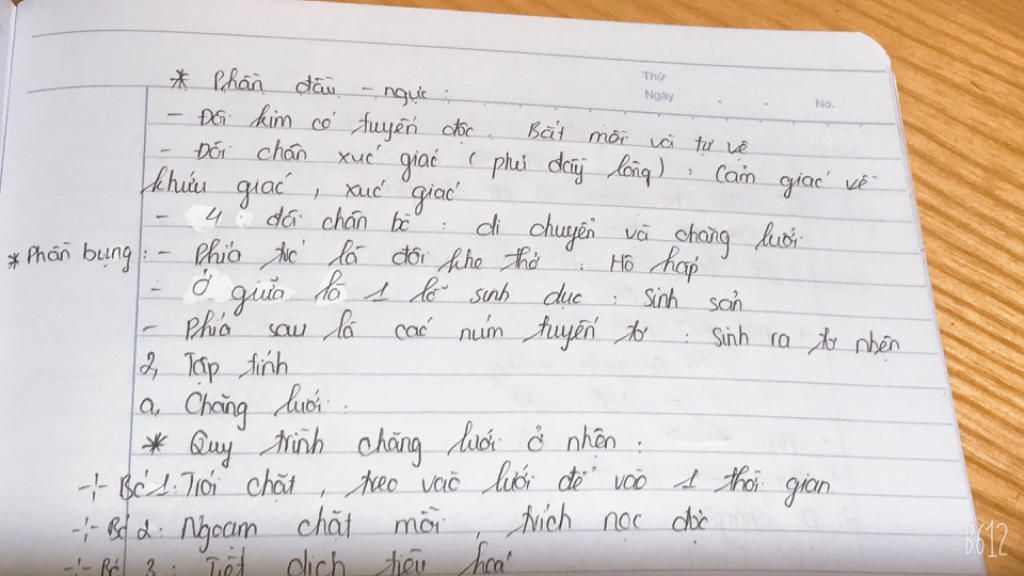 Thứ
Ngày . . No.
* Phần đầu - ngực :
- Đôi kìm có tuyến độc : Bắt mồi và tự vệ
- Đôi chân xúc giác (phủ đầy lông) : Cảm giác về
khứu giác, xúc giác
- 4 đôi chân bò : di chuyển và chăng lưới
* Phần bụng : - Phía trước là đôi khe thở : Hô hấp
- Ở giữa là 1 lỗ sinh dục : Sinh sản
- Phía sau là các núm tuyến tơ : Sinh ra tơ nhện
2, Tập tính
a, Chăng lưới :
* Quy trình chăng lưới ở nhện :
-:- Bc 1: Trói chặt, treo vào lưới để vào 1 thời gian
-:- Bc 2: Ngoạm chặt mồi, trích nọc độc
-:- Bc 3: Tiết dịch tiêu hoá
B612